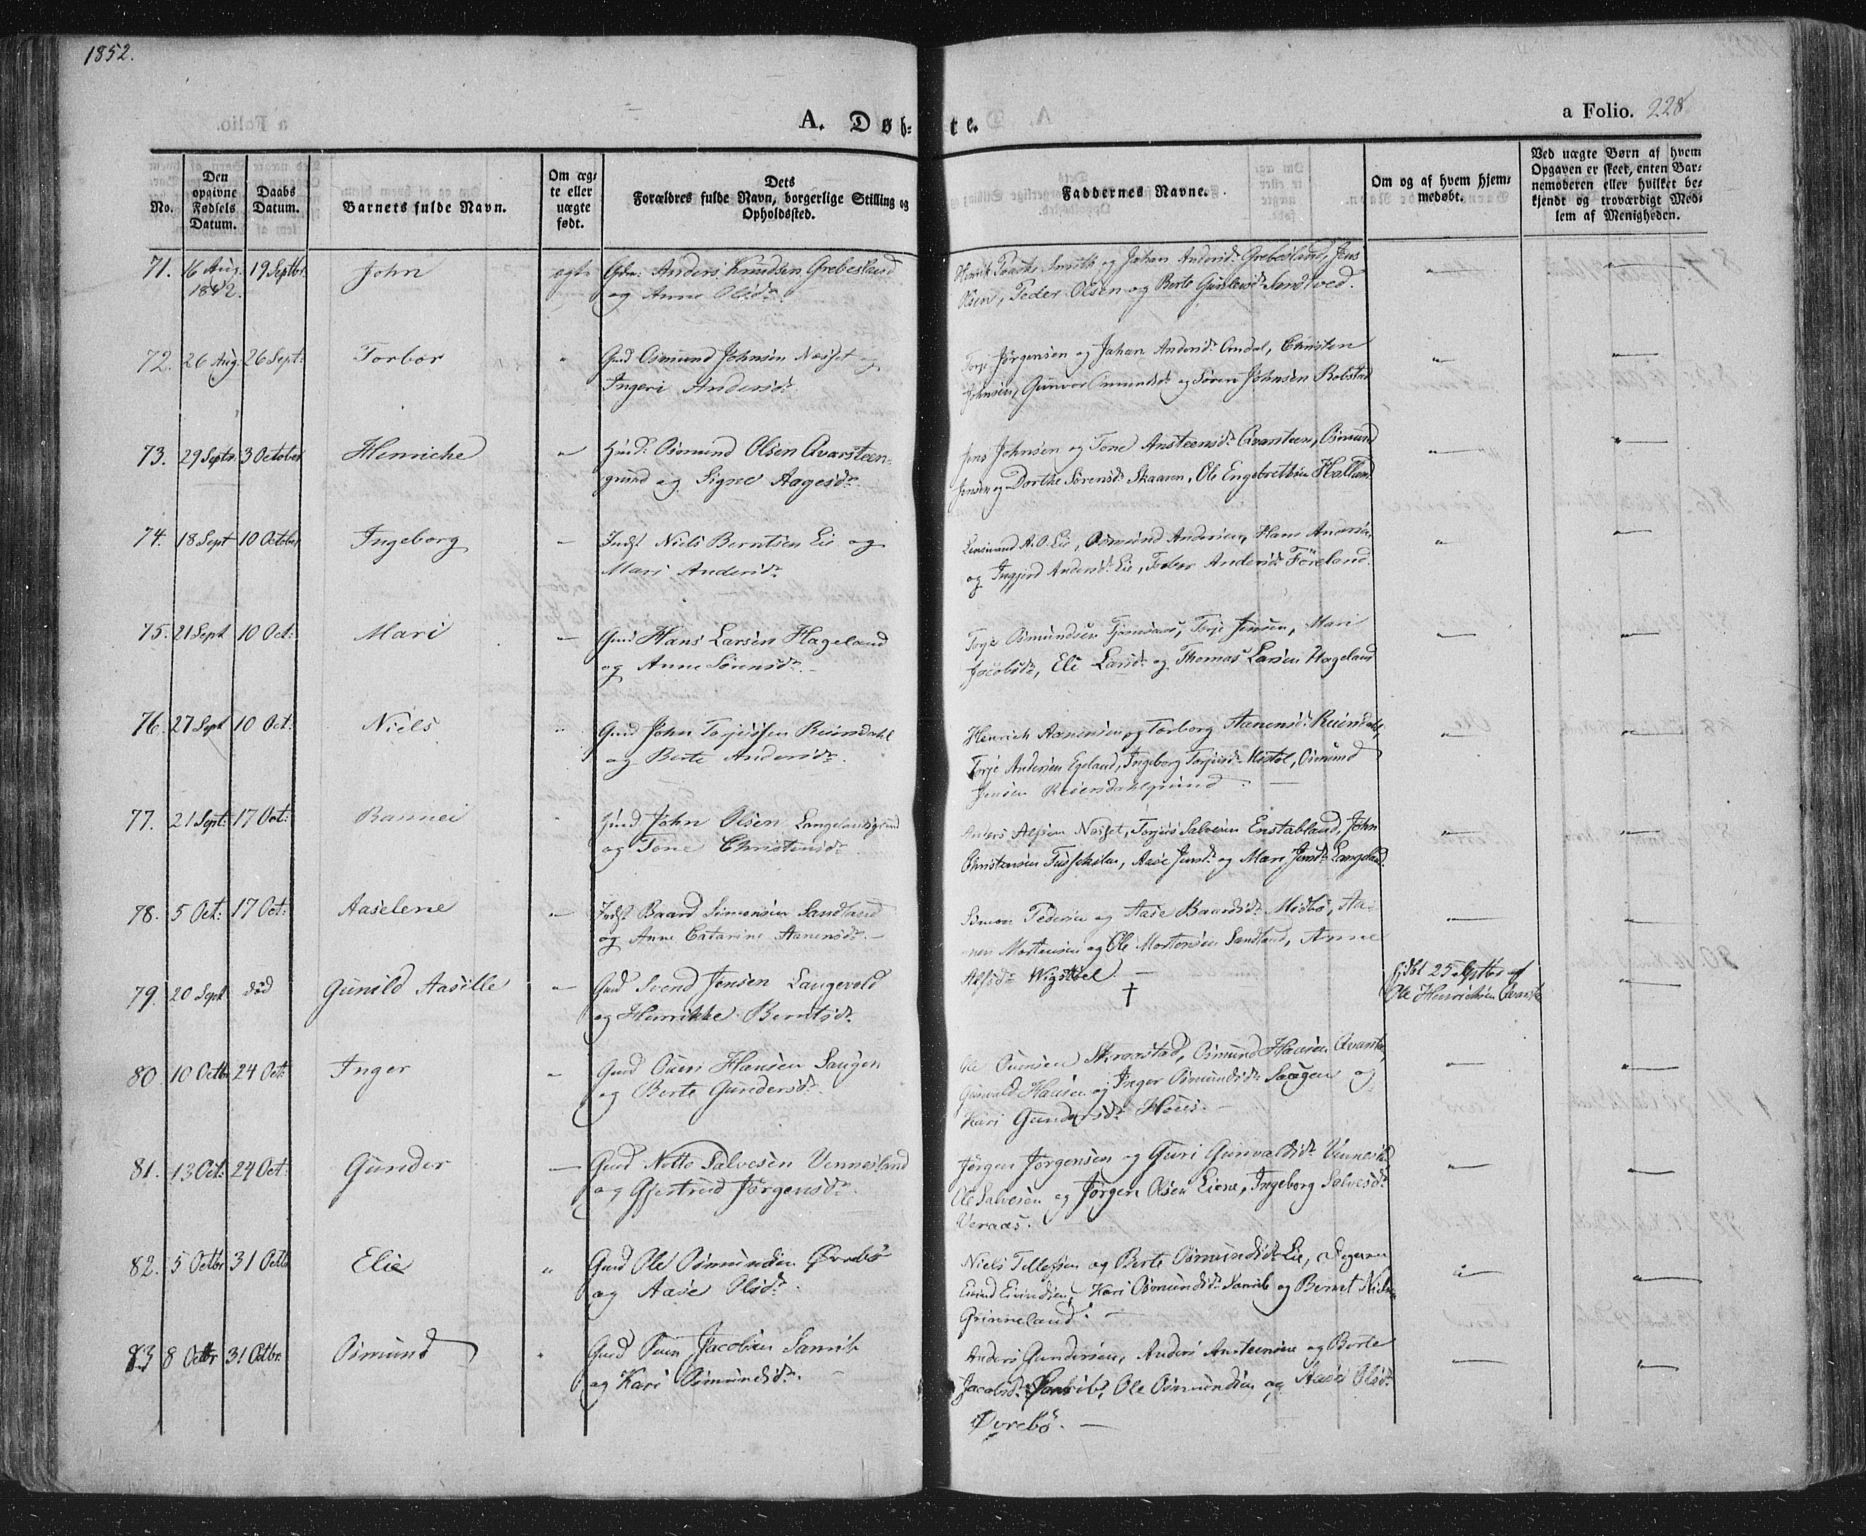 1852.
A. Døb- te.
a Folio. 228
No.
Den opgivne Fødsels Datum.
Daabs Datum.
Barnets fulde Navn.
Om ægte eller uægte født.
Dets Forældres fulde Navn, borgerlige Stilling og Opholdssted.
Faddernes Navne.
Om og af hvem hjemmedøbt.
Ved uægte Børn af hvem Opgaven er skeet, enten Barnemoderen eller hvilket bekjendt og troværdigt Medlem af Menigheden.
71. 16 Aug. 19 Septbr. John ægte Anders Knudsen Grebesland
1852. og Anne Olsdr.
Smith og Johan Andersdr. Grebesland, Jens
Olsen, Peder Olsen og Berte
72. 26 Aug. 26 Sept: Torbor " Gmd Osmund Johnsen Næsset og
Ingeri Andersdr.
Jørgensen og Johan Andersdr. Omdal, Christen
Johnsen, Gunvor Osmundsdr og Søren Johnsen Robstad
73. 29 Septr. 3 October Henriche — Osmund Olsen Qvarsteen-
grund og Signe Aagesdr.
Jens Johnsen og Tone Ansteensdr Qvarsteen, Osmund
Jensen og Dorthe Sørensdr Skaaren, Ole Engebrethsen Halland
74. 18 Sept 10 October Ingeborg — Indst Niels Berntsen Eie og
Mari Andersdr.
A. O. Eie, Osmund Andersen, Hans Andersen,
og Ingjerd Andersdr. Eie, Andersdr Föreland.
75. 21 Sept 10 Oct: Mari — Gmd Hans Larsen Hageland
og Anne Sörensdr. —
Torje Osmundsen Torje Jensen, Mari
Jacobsdr, Eli Larsdr og Thomas Larsen Hageland
76. 27 Sept 10 Oct: Niels " Gmd John Torjussen Reiersdahl
og Berte Andersdr.
Henrich Aanensen og Torborg Aanensdr Reiersdahl,
Torje Andersen Egeland, Ingeborg Torjusdr Mestöl, Osmund
Jensen Reiersdahlsgrund —
77. 21 Sept: 17 Oct: Rannei John Olsen
og Tone Christensdr
Næsset, Torjus Salvesen Enstabland, John
Christensen Aase Jensdr og Mari Jensdr Langeland
78. 5 Oct: 17 Oct: Aaselene — Indst Baard Simonsen Sandland
og Anne Catarine Aanensdr. —
Simon Pedersen og Aase Baardsdr. Mosbö, Aa-
nen Mortensen og Ole Mortensen Sandland, Anne
Alfsdr Wigstöl —
79. 20 Sept død Gunild Aasille — Gmd Svend Jensen Langevold
og Henrikke Berntsdr.
†
hjdbt 25 Septbr af
Ole Henrichsen
80 10 Octbr 24 Oct: Inger — Gmd Ouen Hansen Saugen
og Berte Gundersdr.
Ole Ouensen Skraastad, Osmund Hansen
Gunvald Hansen og Inger Osmundsdr Saugen og
Kari Gundersdr —
81. 13 Oct: 24 Oct: Gunder — Gmd Notto Salvesen Vennesland
og Gjertrud Jørgensdr.
Jörgen Jørgensen og Guri Gunvaldsdr Vennesld
Ole Salvesen og Jörgen Olsen Eiene, Ingeborg Salvesdr
Veraas.
82. 5 Octbr 31 Octb Elie " Gmd Ole Osmundsen Øvrebö
og Aase Olsdr.
Niels Tellefsen og Berte Osmundsdr Eie,
Eivind Eivindsen, Kari Osmundsdr og Bernt
Grinneland. —
83 8 Octbr 31 Octbr. Osmund " Gmd Ouen Jacobsen
og Kari Osmundsdr. —
Anders Gundersen, Anders Ansteensen og Berte
Jacobsdr Ole Osmundsen og Aase Olsdr
Øvrebö. —